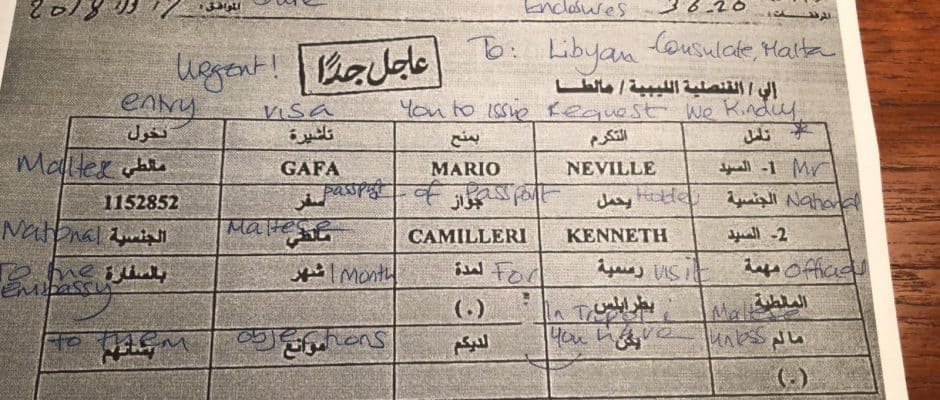 الموافق:
Enclosures
المرفقات:
To: Libyan Consulate, Malta
Urgent! عاجل جدًا
إلى / القنصلية الليبية / مالطا
entry visa You to issue Request We Kindly
نأمل التكرم بمنح تأشيرة دخول
1- السيد Mr NEVILLE MARIO GAFA مالطي Maltese
الجنسية National يحمل Holder جواز of Passport سفر passport 1152852
2- السيد KENNETH CAMILLERI مالطي Maltese الجنسية National
مهمة Official رسمية visit لمدة For شهر 1 month بالسفارة To the Embassy
المالطية Maltese بطرابلس In Tripoli (.)
مالم unless يكن You have لديكم موانع objections بشأنهم to them
(.)